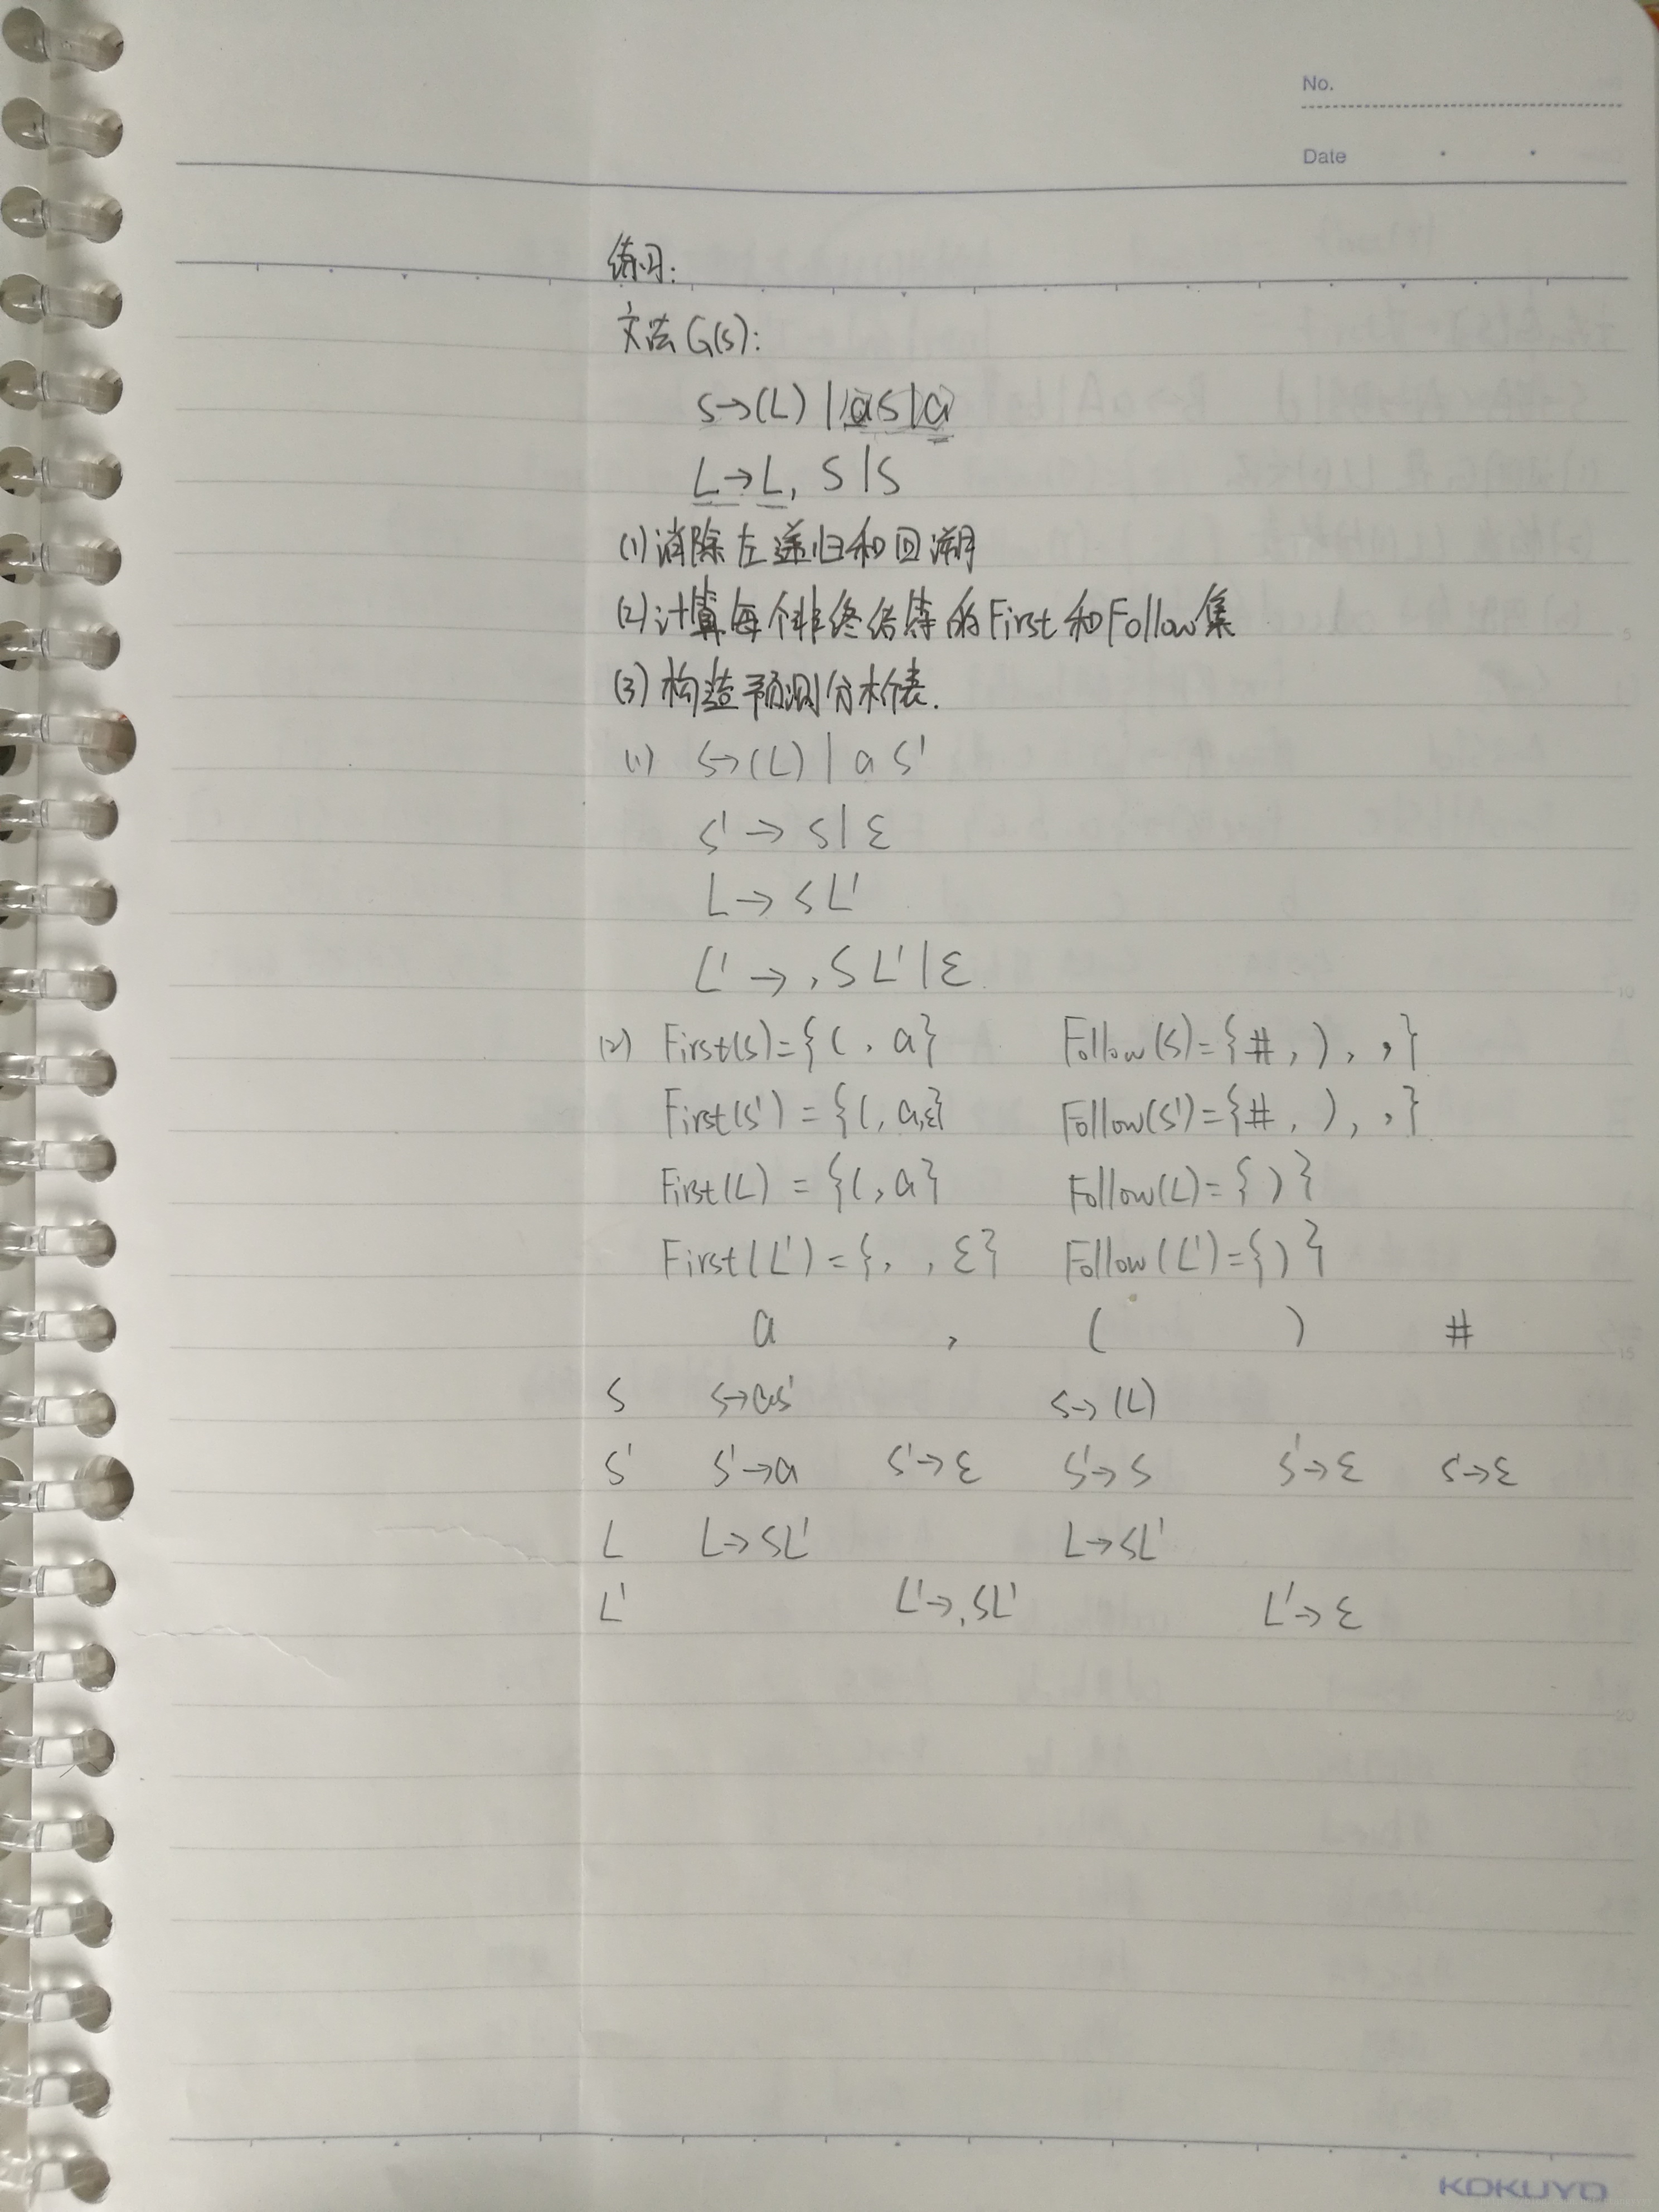 No.
Date
练习:
文法G(s):
S→(L)|aS|a
L→L,S|S
(1)消除左递归和回溯
(2)计算每个非终结符的First和Follow集
(3)构造预测分析表.
(1) S→(L)|aS'
S'→S|ε
L→SL'
L'→,SL'|ε
(2) First(S)={(,a} Follow(S)={#,),,}
First(S')={(,a,ε} Follow(S')={#,),,}
First(L)={(,a} Follow(L)={)}
First(L')={,,ε} Follow(L')={)}
a , ( ) #
S S→aS' S→(L)
S' S'→a S'→ε S'→S S'→ε S'→ε
L L→SL' L→SL'
L' L'→,SL' L'→ε
KOKUYO